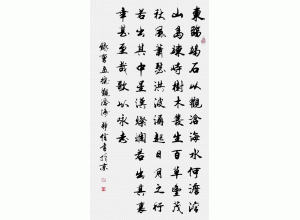 東臨碣石以觀滄海水何澹澹
山島竦峙樹木叢生百草豐茂
秋風蕭瑟洪波湧起日月之行
若出其中星漢燦爛若出其裏
幸甚至哉歌以詠志
錄曹孟德觀滄海 書於京